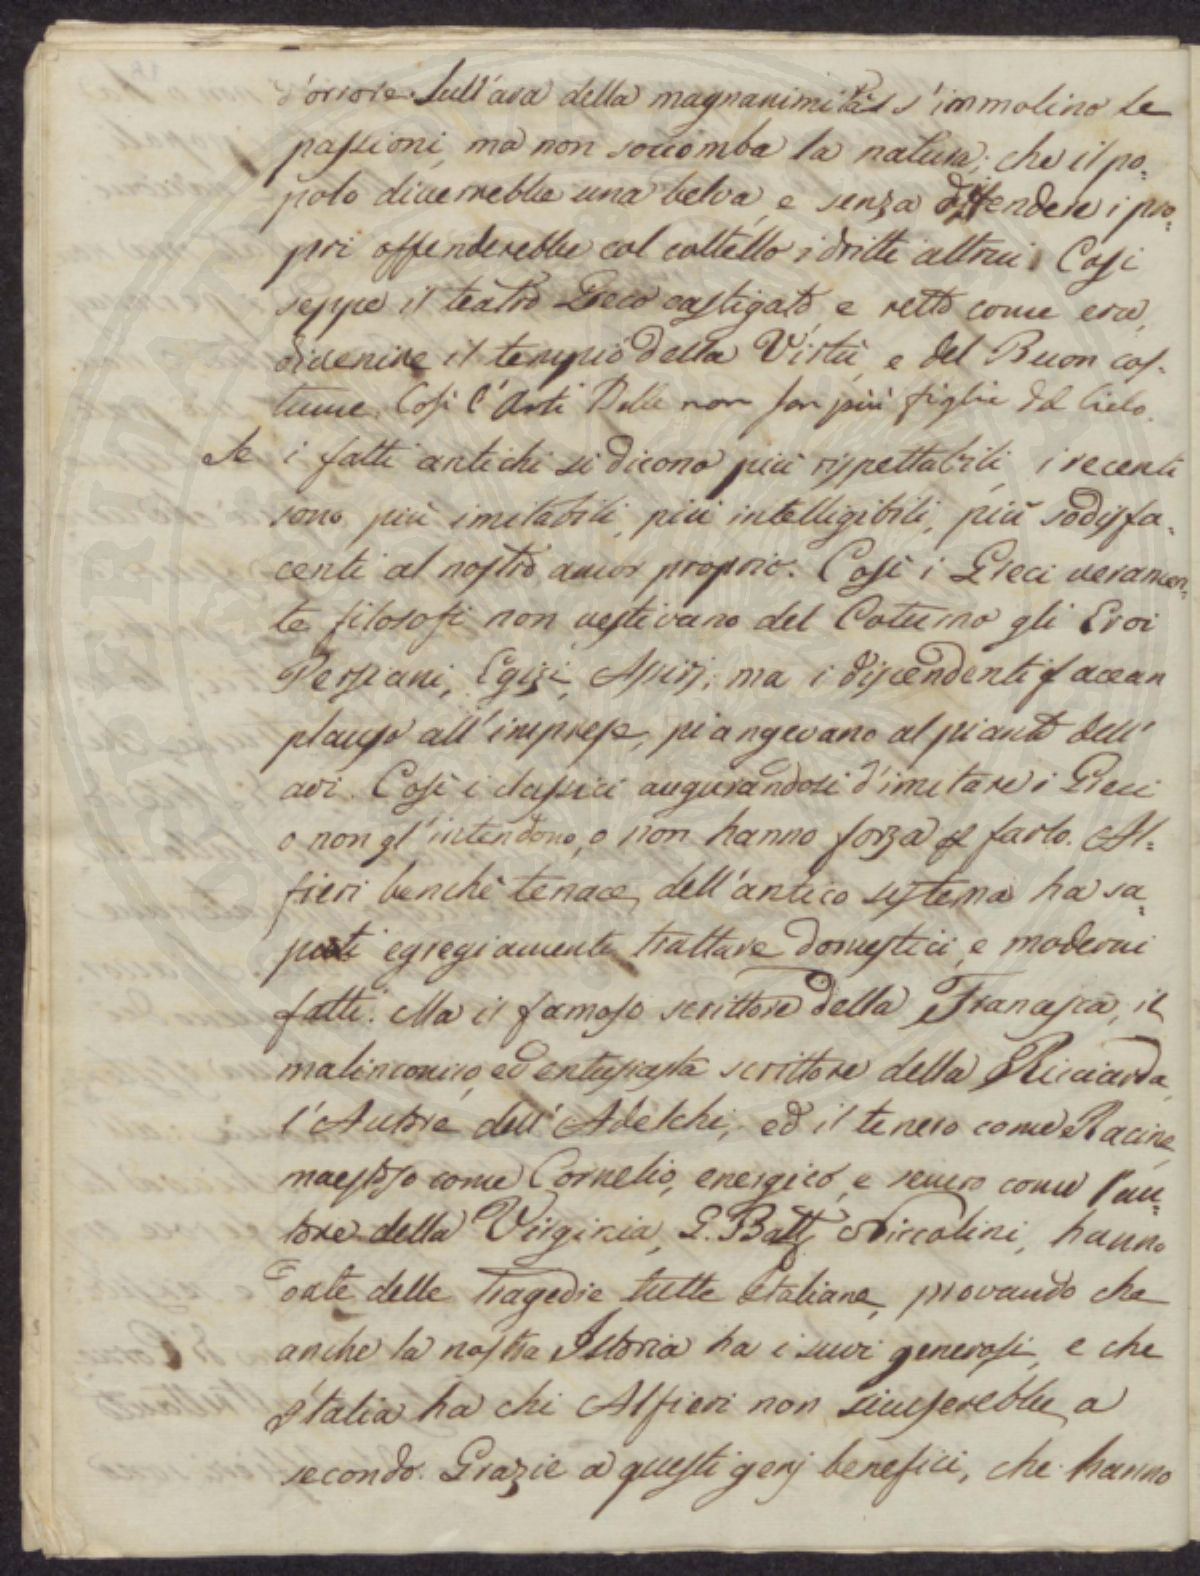 d'orrore. Sull'ara della magnanimità s'immolino le
passioni, ma non soccomba la natura; che il po=
polo diverrebbe una belva, e senza difendere i pro=
pri offenderebbe col coltello i dritti altrui. Così
seppe il teatro Greco castigato e retto come era,
divenire il tempio della Virtù, e del Buon cos=
tume. Così l'Arti Belle non son più figlie del Cielo.
Se i fatti antichi si dicono più rispettabili, i recenti
sono più imitabili, più intelligibili, più sodisfa=
centi al nostro amor proprio. Così i Greci veramen=
te filosofi non vestivano del Coturno gli Eroi
Persiani, Egizi, Assirj; ma i discendenti facean
plauso all'imprese, piangevano al pianto dell'
avi. Così i classici augurandosi d'imitare i Greci
o non gl'intendono, o non hanno forza di farlo. Al=
fieri benchè tenace dell'antico sistema ha sa=
puti egregiamente trattare domestici, e moderni
fatti. Ma il famoso scrittore della Francesca, il
malinconico, ed entusiasta scrittore della Ricciarda,
l'Autore dell'Adelchi, ed il tenero come Racine,
maestoso come Cornelio, energico, e severo come l'au=
tore della Virginia, G. Batt. Niccolini, hanno
date delle tragedie tutte Italiane, provando che
anche la nostra Istoria ha i suoi generosi, e che
Italia ha chi Alfieri non sdegnerebbe a
secondo. Grazie a questi genj benefici, che hanno